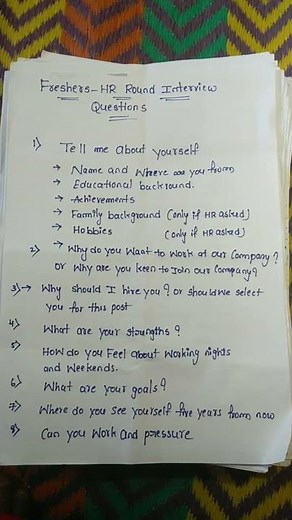 Freshers - HR Round Interview
Questions
1) Tell me about yourself
→ Name and where are you from
→ Educational backround.
→ Achievements
→ Family background (only if HR asked)
→ Hobbies (only if HR asked)
2) → Why do you want to work at our company?
or Why are you keen to Join our company?
3) → Why should I hire you? or should we select
you for this post
4) What are your strengths?
5) How do you Feel about working nights
and weekends.
6) What are your goals?
7) Where do you see yourself five years from now
8) Can you work and pressure